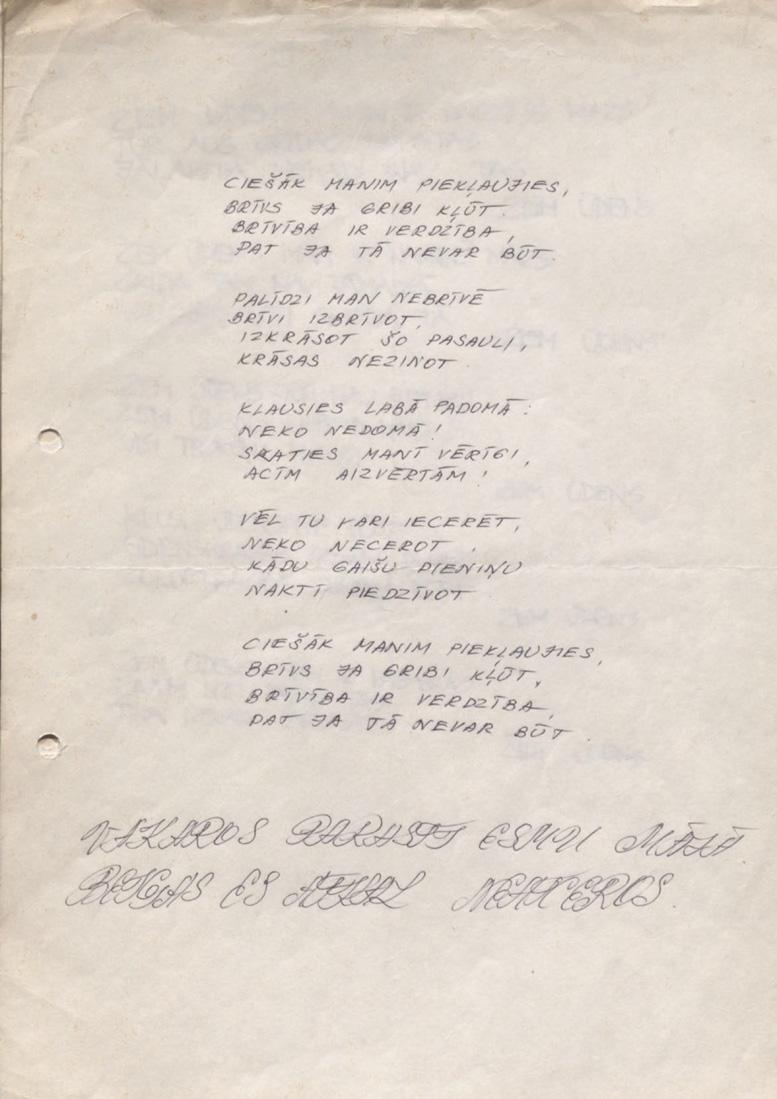 CIEŠĀK MANIM PIEKĻAUJIES,
BRĪVS JA GRIBI KĻŪT.
BRĪVĪBA IR VERDZĪBA,
PAT JA TĀ NEVAR BŪT.
PALĪDZI MAN NEBRĪVĒ
BRĪVI IZBRĪVOT,
IZKRĀSOT ŠO PASAULI,
KRĀSAS NEZINOT.
KLAUSIES LABĀ PADOMĀ:
NEKO NEDOMĀ!
SKATIES MANĪ VĒRĪGI,
ACĪM AIZVĒRTĀM!
VĒL TU VARI IECERĒT,
NEKO NECEROT,
KĀDU GAIŠU DIENIŅU
NAKTĪ PIEDZĪVOT.
CIEŠĀK MANIM PIEKĻAUJIES,
BRĪVS JA GRIBI KĻŪT,
BRĪVĪBA IR VERDZĪBA,
PAT JA TĀ NEVAR BŪT.
VAKAROS PARASTI ESMU MĀJĀ
ES ATKAL NEATCEROS.